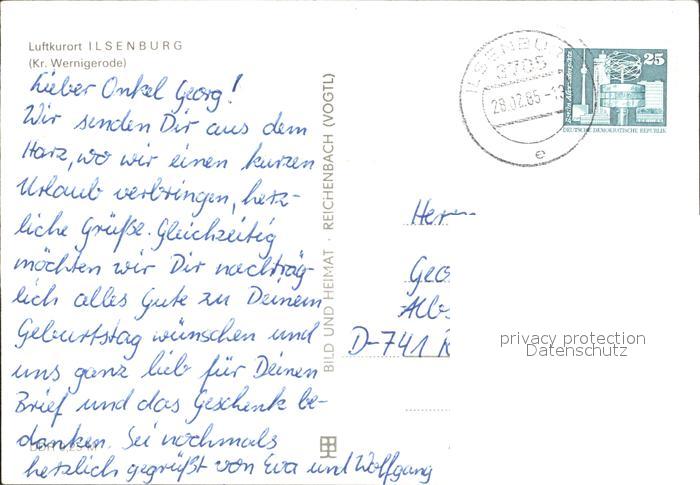 Luftkurort ILSENBURG
(Kr. Wernigerode)
Lieber Onkel Georg!
Wir senden Dir aus dem
Harz, wo wir einen kurzen
Urlaub verbringen, herz-
liche Grüße. Gleichzeitig
möchten wir Dir nachträg-
lich alles Gute zu Deinem
Geburtstag wünschen und
uns ganz lieb für Deinen
Brief und das Geschenk be-
danken. Sei nochmals
herzlich gegrüßt von Eva und Wolfgang
BILD UND HEIMAT · REICHENBACH (VOGTL)
ILSENBU
3705
28.02.85-12
e
25
Berlin, Alexanderplatz
DEUTSCHE DEMOKRATISCHE REPUBLIK
Herrn
Geo
Alb
D-741 R
privacy protection
Datenschutz